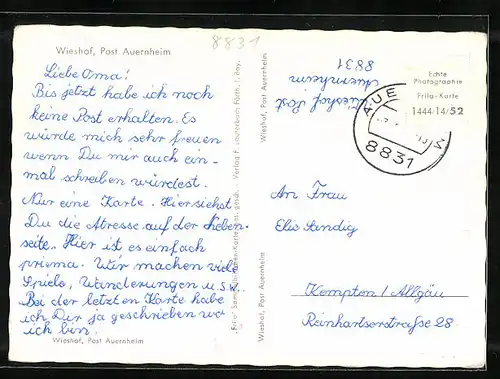 Wieshof, Post Auernheim
8831
Liebe Oma!
Bis jetzt habe ich noch
keine Post erhalten. Es
würde mich sehr freuen
wenn Du mir auch ein-
mal schreiben würdest.
Nur eine Karte. Hier siehst
Du die Atresse auf der Neben-
seite. Hier ist es einfach
prisma. Wir machen viele
Spiele, Wanderungen u.s.w.
Bei der letzten Karte habe
ich Dir ja geschrieben wo
ich bin.
Wieshof, Post Auernheim
Wieshof, Post Auernheim
Wieshof, Post Auernheim
Wieshof Post
Auernheim
8831
AUE
8831
Echte
Photographie
Frila-Karte
1444/14/52
An Frau
Elis Sandig
Kempten / Allgäu
Reinhartserstraße 28